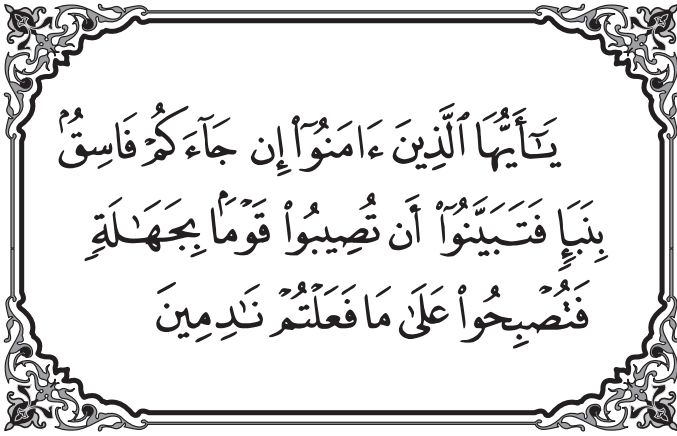 يَـٰٓأَيُّهَا ٱلَّذِينَ ءَامَنُوٓا۟ إِن جَآءَكُمْ فَاسِقٌۢ
بِنَبَإٍ فَتَبَيَّنُوٓا۟ أَن تُصِيبُوا۟ قَوْمًۢا بِجَهَـٰلَةٍ
فَتُصْبِحُوا۟ عَلَىٰ مَا فَعَلْتُمْ نَـٰدِمِينَ